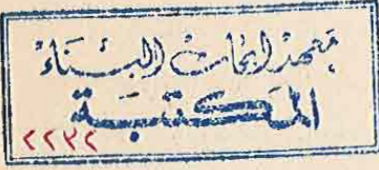 معهد ابحاث البناء
المكتبة
٢٢٣٢